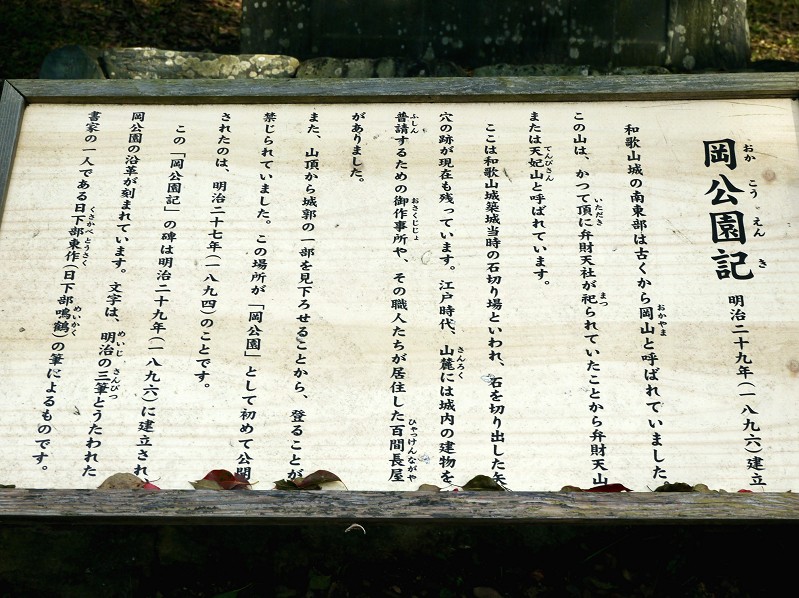 岡公園記 明治二十九年(一八九六)建立
和歌山城の南東部は古くから岡山と呼ばれていました
この山は、かつて頂に弁財天社が祀られていたことから弁財天山
または天妃山と呼ばれています。
ここは和歌山城築城当時の石切り場といわれ、石を切り出した矢
穴の跡が現在も残っています。江戸時代、山麓には城内の建物を
普請するための御作事所や、その職人たちが居住した百間長屋
がありました。
また、山頂から城郭の一部を見下ろせることから、登ることが
禁じられていました。この場所が「岡公園」として初めて公開
されたのは、明治二十七年(一八九四)のことです。
この「岡公園記」の碑は明治二十九年(一八九六)に建立され
岡公園の沿革が刻まれています。文字は、明治の三筆とうたわれた
書家の一人である日下部東作(日下部鳴鶴)の筆によるものです。